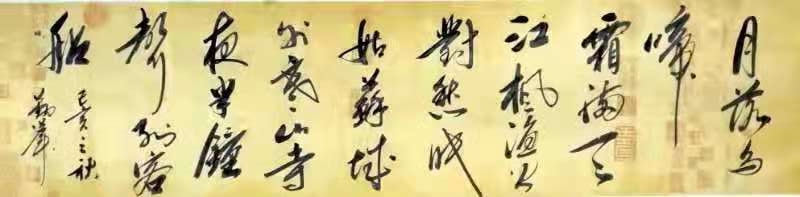 月落烏
啼
霜滿天
江楓漁火
對愁眠
姑蘇城
外寒山寺
夜半鐘
聲到客
船
己亥之秋